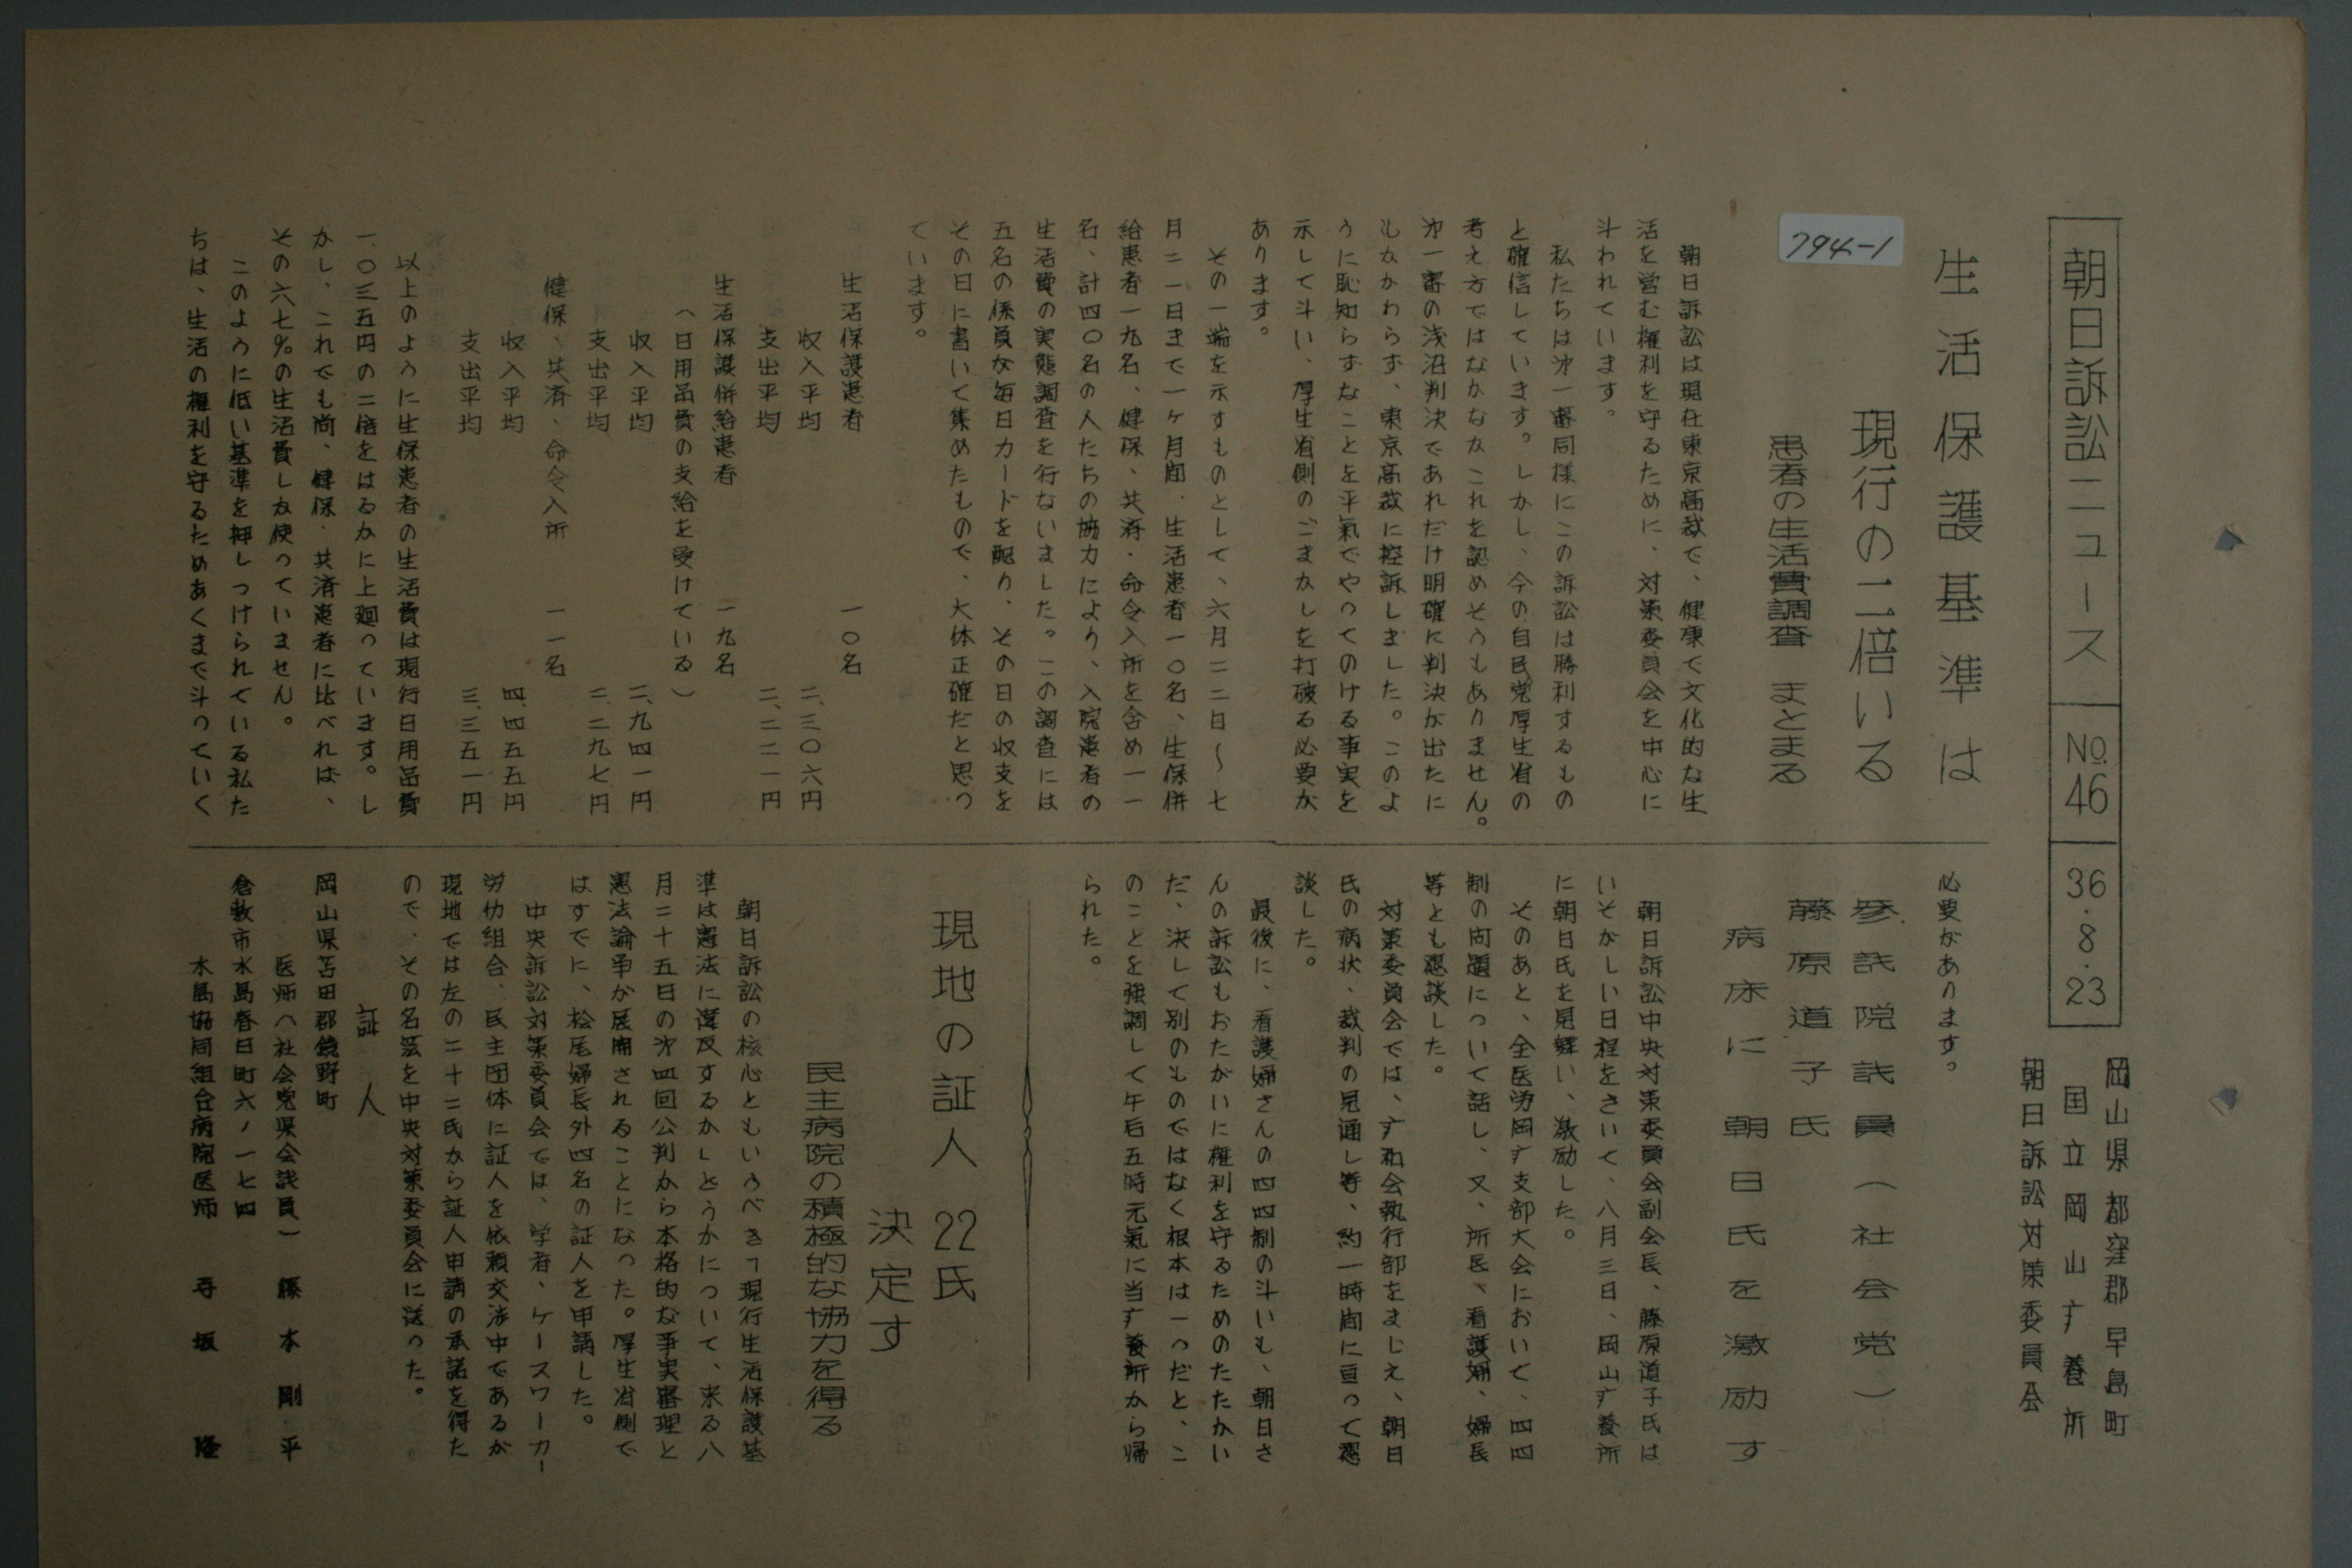 朝日訴訟ニュース
No.46
36.8.23
岡山県都窪郡早島町
国立岡山疒養所
朝日訴訟対策委員会
794-1
生活保護基準は
現行の二倍いる
患者の生活費調査 まとまる
朝日訴訟は現在東京高裁で、健康で文化的な生
活を営む権利を守るために、対策委員会を中心に
斗われています。
私たちは㐧一審同様にこの訴訟は勝利するもの
と確信しています。しかし、今の自民党厚生省の
考え方ではなかなかこれを認めそうもありません。
㐧一審の浅沼判決であれだけ明確に判決が出たに
もかかわらず、東京高裁に控訴しました。このよ
うに恥知らずなことを平氣でやってのける事実を
示して斗い、厚生省側のごまかしを打破る必要が
あります。
その一端を示すものとして、六月二二日～七
月二一日まで一ヶ月間、生活患者一〇名、生保併
給患者一九名、健保、共済・命令入所を含め一一
名、計四〇名の人たちの協力により、入院患者の
生活費の実態調査を行ないました。この調査には
五名の係員が毎日カードを配り、その日の収支を
その日に書いて集めたもので、大体正確だと思っ
ています。
生活保護患者 一〇名
収入平均 二、三〇六円
支出平均 二、二二一円
生活保護併給患者 一九名
（日用品費の支給を受けている）
収入平均 二、九四一円
支出平均 二、二九七円
健保、共済、命令入所 一一名
収入平均 四、四五五円
支出平均 三、三五一円
以上のように生保患者の生活費は現行日用品費
一、〇三五円の二倍をはるかに上廻っています。し
かし、これでも尚、健保・共済患者に比べれば、
その六七％の生活費しか使っていません。
このように低い基準を押しつけられている私た
ちは、生活の権利を守るためあくまで斗っていく
必要があります。
参議院議員（社会党）
藤原道子氏
病床に朝日氏を激励す
朝日訴訟中央対策委員会副会長、藤原道子氏は
いそがしい日程をさいて、八月三日、岡山疒養所
に朝日氏を見舞い、激励した。
そのあと、全医労岡疒支部大会において、四四
制の問題について話し、又、所長、看護婦、婦長
等とも懇談した。
対策委員会では、疒和会執行部をまじえ、朝日
氏の病状、裁判の見通し等、約一時間に亘って懇
談した。
最後に、看護婦さんの四四制の斗いも、朝日さ
んの訴訟もおたがいに権利を守るためのたたかい
だ、決して別のものではなく根本は一つだと、こ
のことを強調して午后五時元氣に当疒養所から帰
られた。
現地の証人22氏
決定す
民主病院の積極的な協力を得る
朝日訴訟の核心ともいうべき「現行生活保護基
準は憲法に違反するか」どうかについて、来る八
月二十五日の㐧四回公判から本格的な事実審理と
憲法論争が展開されることになった。厚生省側で
はすでに、桧尾婦長外四名の証人を申請した。
中央訴訟対策委員会では、学者、ケースワーカー
労仂組合、民主団体に証人を依頼交渉中であるが
現地では左の二十二氏から証人申請の承諾を得た
ので、その名簿を中央対策委員会に送った。
証人
岡山県苫田郡鏡野町
医師（社会党県会議員） 藤本剛平
倉敷市水島春日町六ノ一七四
水島協同組合病院医師 寺坂隆